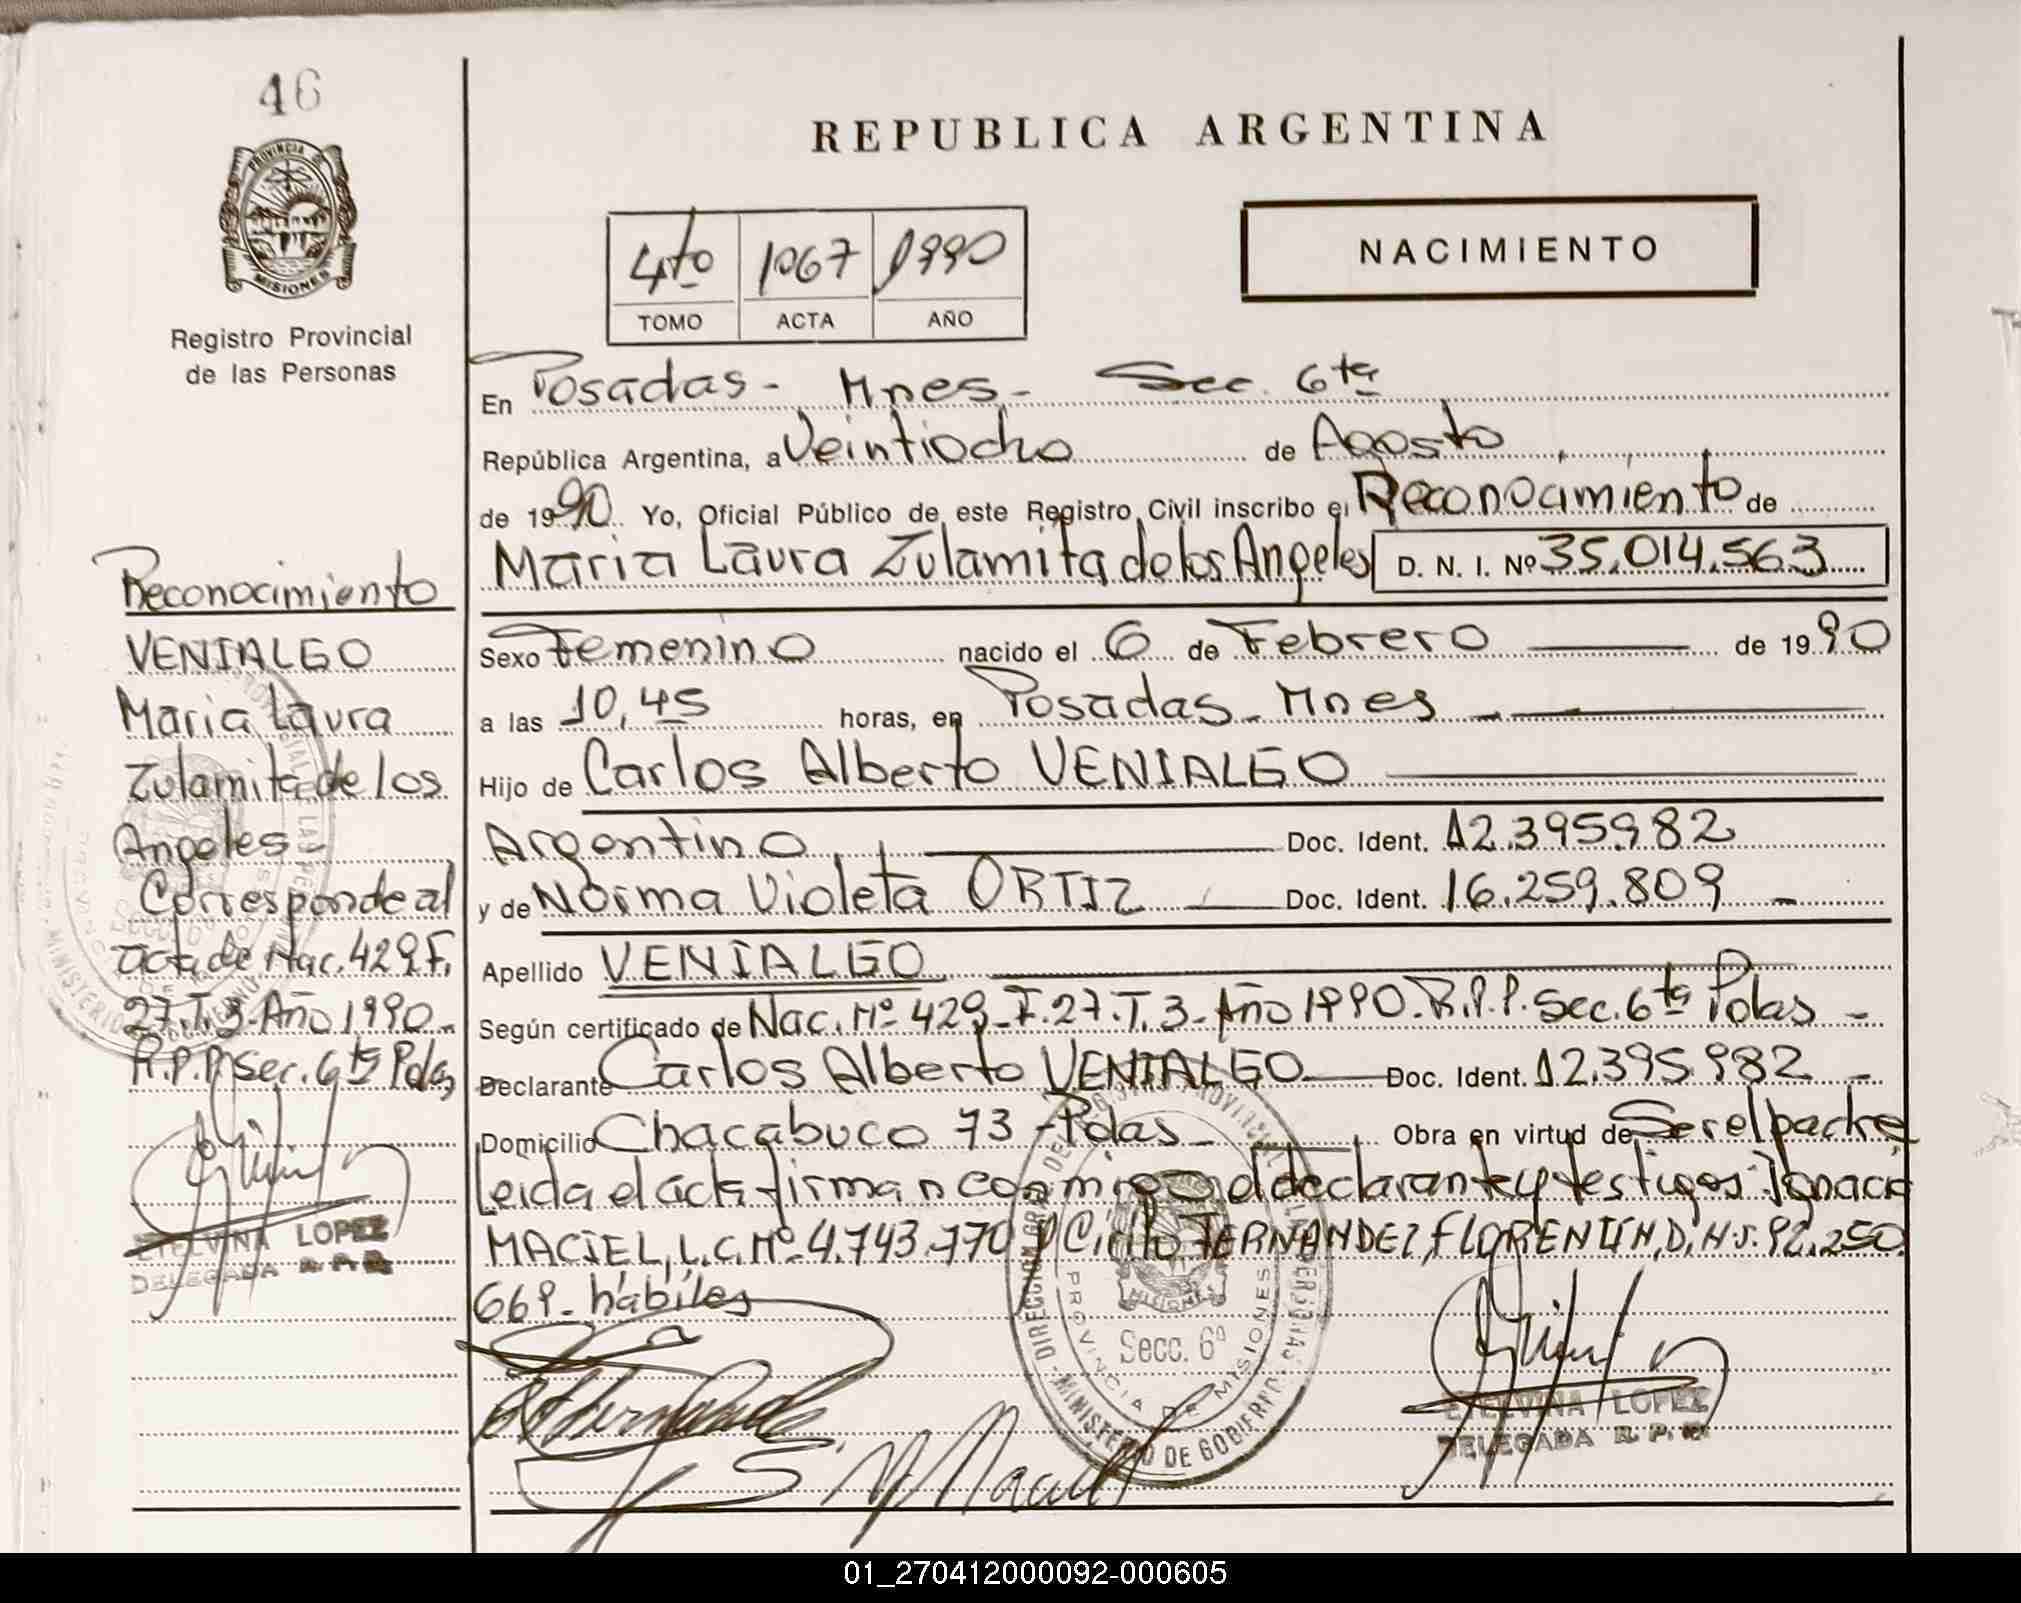 46
PROVINCIA DE
MISIONES
Registro Provincial
de las Personas
REPUBLICA ARGENTINA
4to 1067 1990
TOMO ACTA AÑO
NACIMIENTO
En Posadas - Mnes - Sec. 6ta
República Argentina, a Veintiocho de Agosto
de 1990 Yo, Oficial Público de este Registro Civil inscribo el Reconocimiento de
Maria Laura Zulamita de los Angeles D. N. I. Nº 35.014.563
Sexo Femenino nacido el 6 de Febrero de 1990
a las 10,45 horas, en Posadas - Mnes -
Hijo de Carlos Alberto VENIALGO
Argentino Doc. Ident. 12.395982
y de Norma Violeta ORTIZ Doc. Ident. 16.259.809 -
Apellido VENIALGO
Según certificado de Nac. Nº 429 - F. 27. T. 3 - Año 1990. R.P.P. Sec. 6ta Pdas -
Declarante Carlos Alberto VENIALGO Doc. Ident. 12.395.982 -
Domicilio Chacabuco 73 - Pdas - Obra en virtud de Ser el padre
Leida el acta firman conmigo el declarante y testigos: Ignacio
MACIEL, L.C. Nº 4.743.770 y Cirilo FERNANDEZ FLORENTIN, D.N.I. 92.250.
669 - hábiles
Reconocimiento
VENIALGO
Maria Laura
Zulamita de los
Angeles -
Corresponde al
acta de Nac. 429 F.
27. T. 3 - Año 1990 -
R.P.P. Sec. 6ta Pdas
ETELVINA LOPEZ
DELEGADA R. P. P.
DIRECCION GRAL DEL REGISTRO PROVINCIAL DE LAS PERSONAS
MINISTERIO DE GOBIERNO
PROVINCIA DE MISIONES
MISIONES
Secc. 6ª
ETELVINA LOPEZ
DELEGADA R. P. P.
01_270412000092-000605